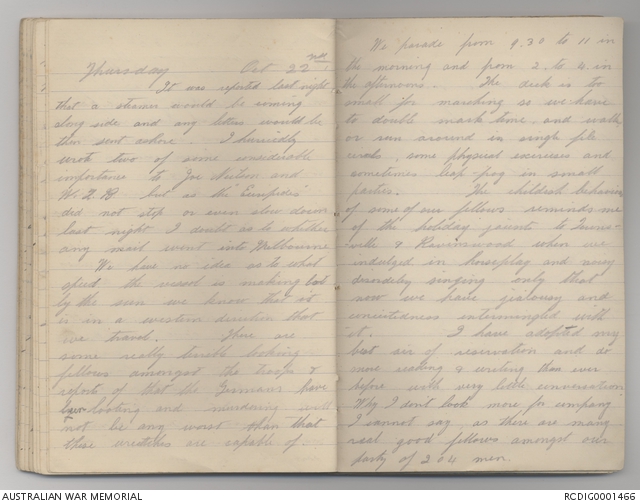 Thursday Oct 22nd
It was reported last night
that a steamer would be coming
along side and any letters would be
then sent ashore. I hurriedly
wrote two of some considerable
importance to Joe and
W. but as the "Euripides"
did not stop or even slow down
last night I doubt as to whether
any mail went into Melbourne
We have no idea as to what
speed the vessel is making but
by the sun we know that it
is in a western direction that
we travel. There are
some really terrible looking
fellows amongst the troops &
reports of that the Germans have
been looting and murdering will
not be any worst than that
these wretches are capable of.
We parade from 9.30 to 11 in
the morning and from 2 to 4 in
the afternoons. The deck is too
small for marching so we have
to double mark time, and walk
or run around in single file
circles, some physical exercises and
sometimes leap-frog in small
parties. The childish behavior
of some of our fellows reminds me
of the holiday jaunts to Towns-
ville & Ravenswood when we
indulged in horseplay and noisy
disorderly singing only that
now we have jealousy and
conceitedness intermingled with
it. I have adopted my
best air of reservation and do
more reading & writing than ever
before with very little conversation
Why I don't look more for company
I cannot say, as there are many
real good fellows amongst our
party of 204 men.
AUSTRALIAN WAR MEMORIAL
RCDIG0001466